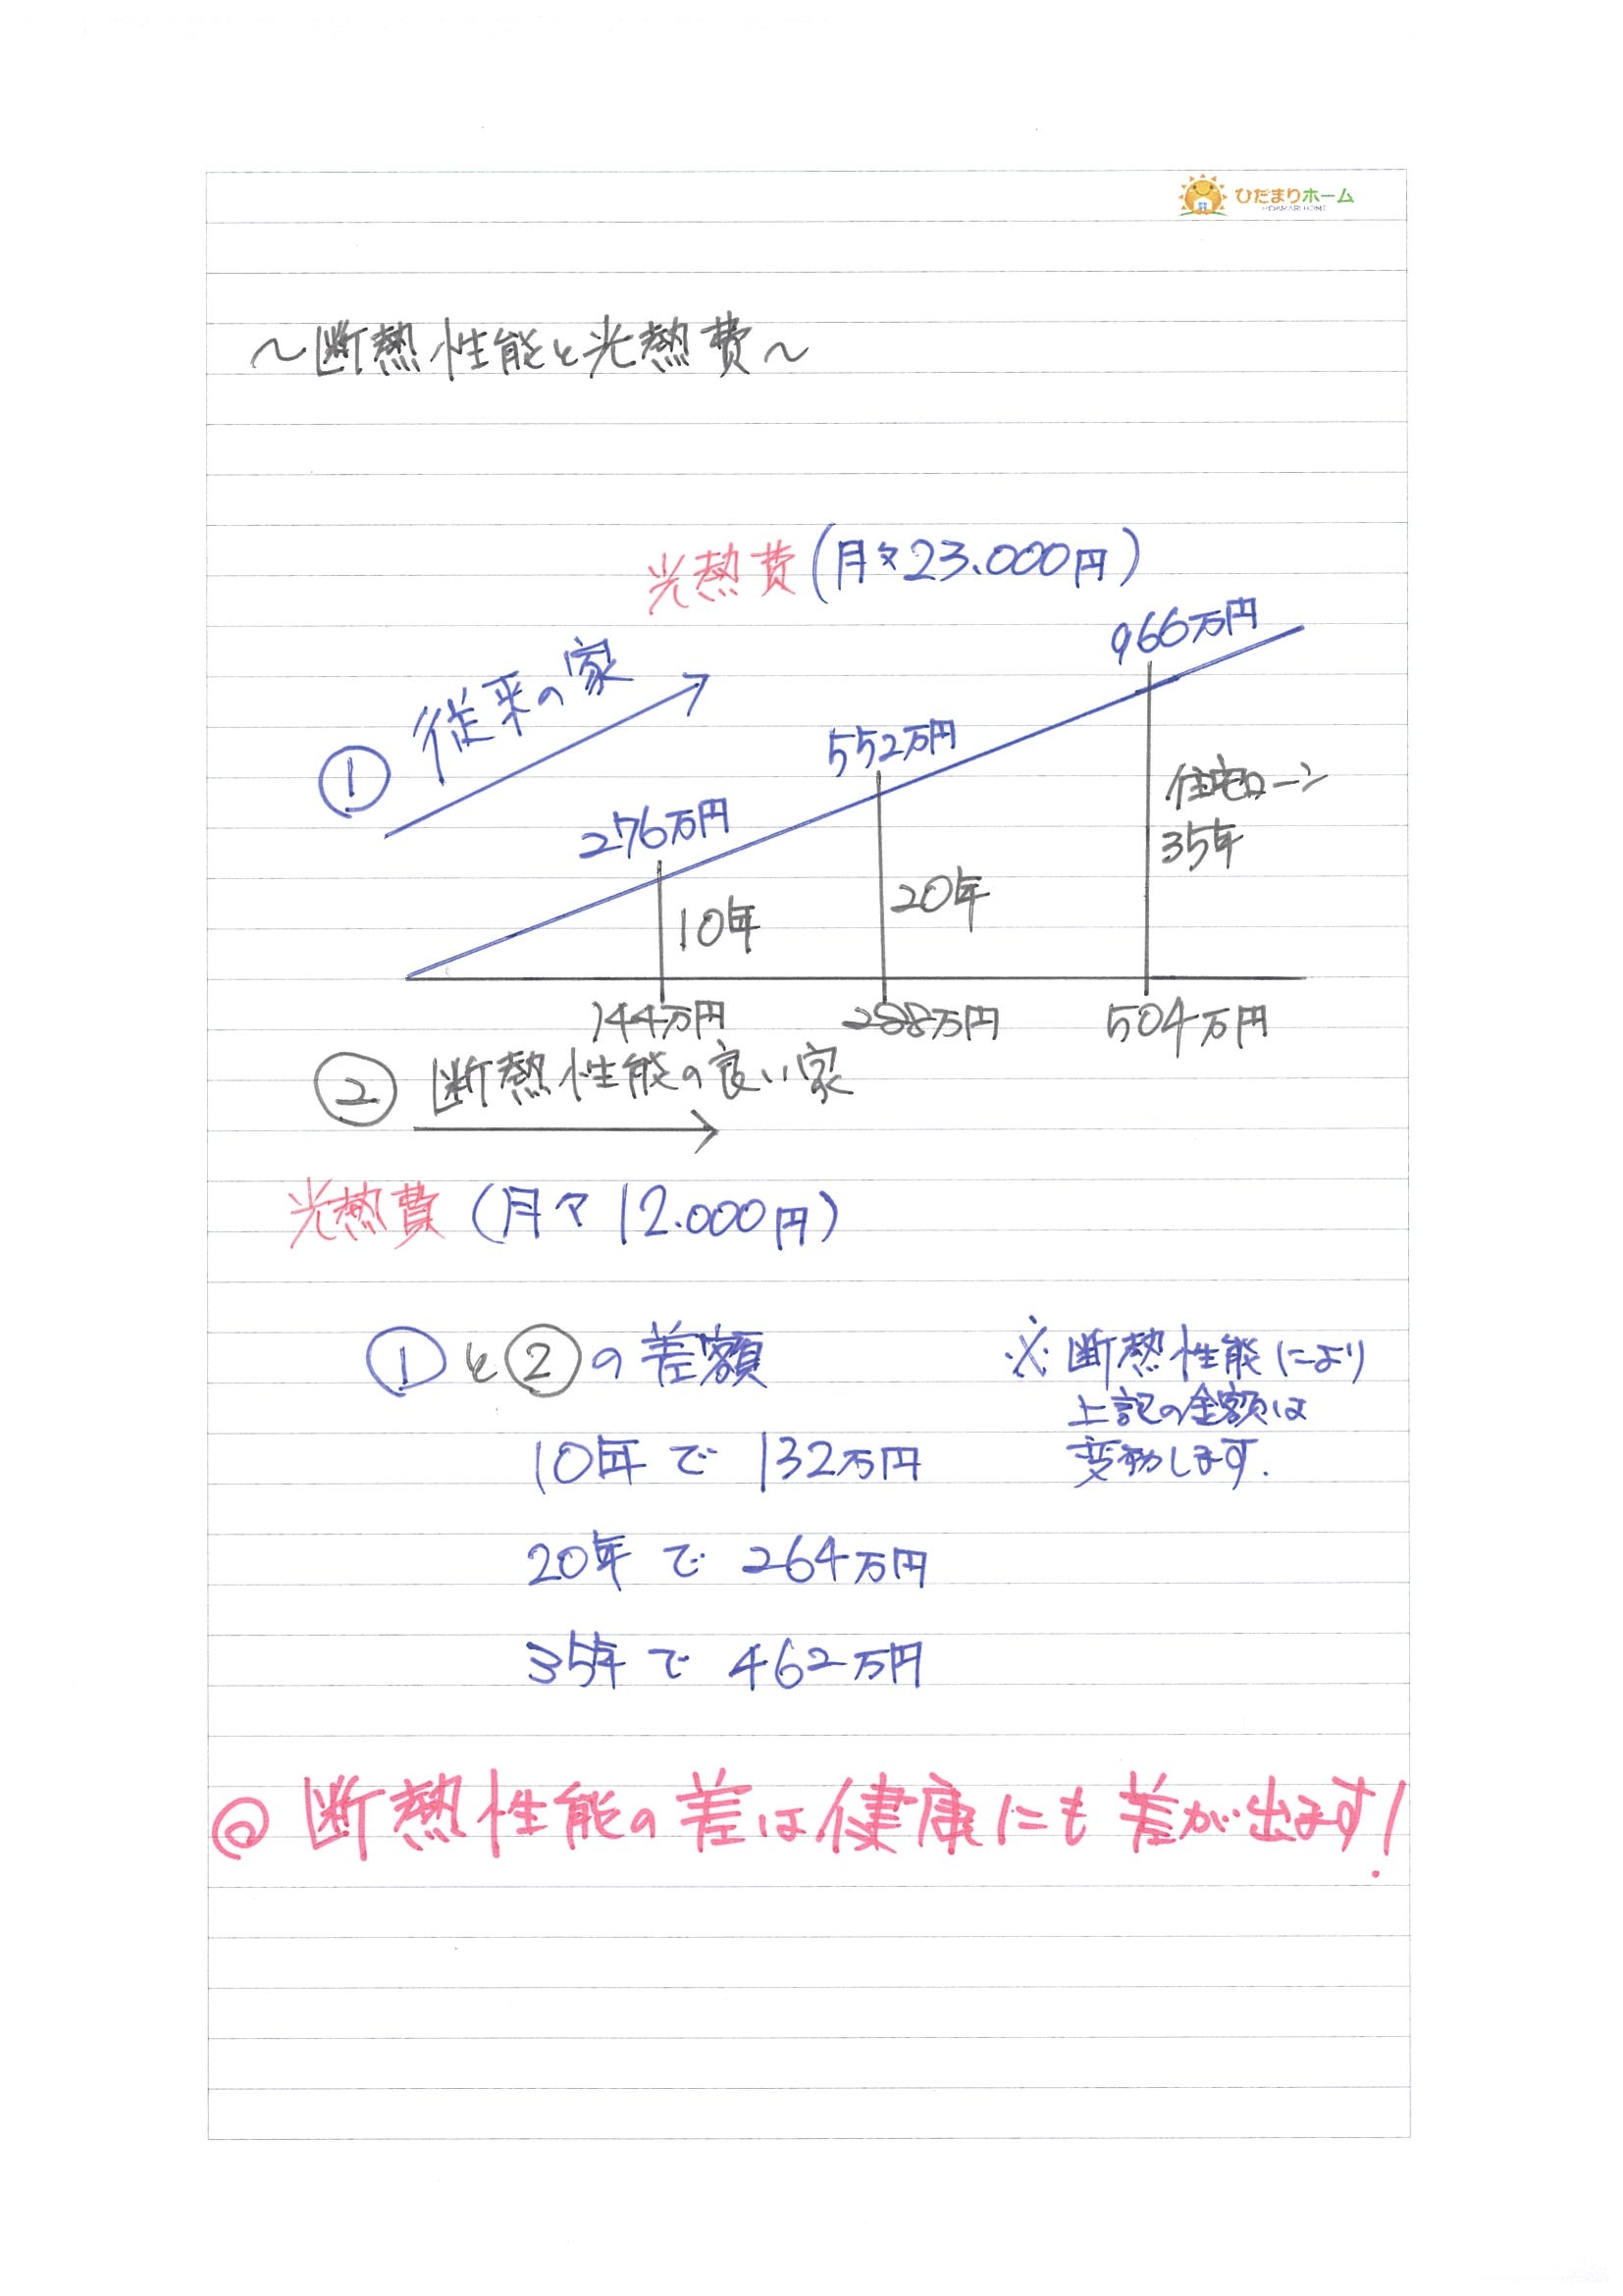 ひだまりホーム
HIDAMARI HOME
～断熱性能と光熱費～
光熱費(月々23.000円)
966万円
① 従来の家
552万円
276万円
住宅ローン
35年
20年
10年
144万円 288万円 504万円
② 断熱性能の良い家
光熱費(月々12.000円)
①と②の差額
※断熱性能により
上記の金額は
変動します.
10年で 132万円
20年で 264万円
35年で 462万円
◎断熱性能の差は健康にも差が出ます!